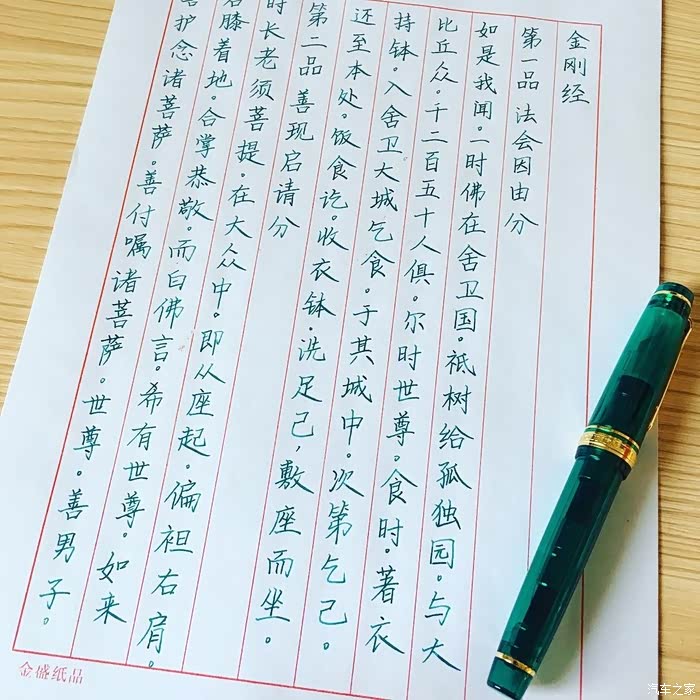 金刚经
第一品 法会因由分
如是我闻。一时佛在舍卫国。祇树给孤独园。与大
比丘众。千二百五十人俱。尔时世尊。食时。著衣
持钵。入舍卫大城乞食。于其城中。次第乞已。
还至本处。饭食讫。收衣钵。洗足已,敷座而坐。
第二品 善现启请分
时长老须菩提。在大众中。即从座起。偏袒右肩。
右膝着地。合掌恭敬。而白佛言。希有世尊。如来
护念诸菩萨。善付嘱诸菩萨。世尊。善男子。
金盛纸品
汽车之家